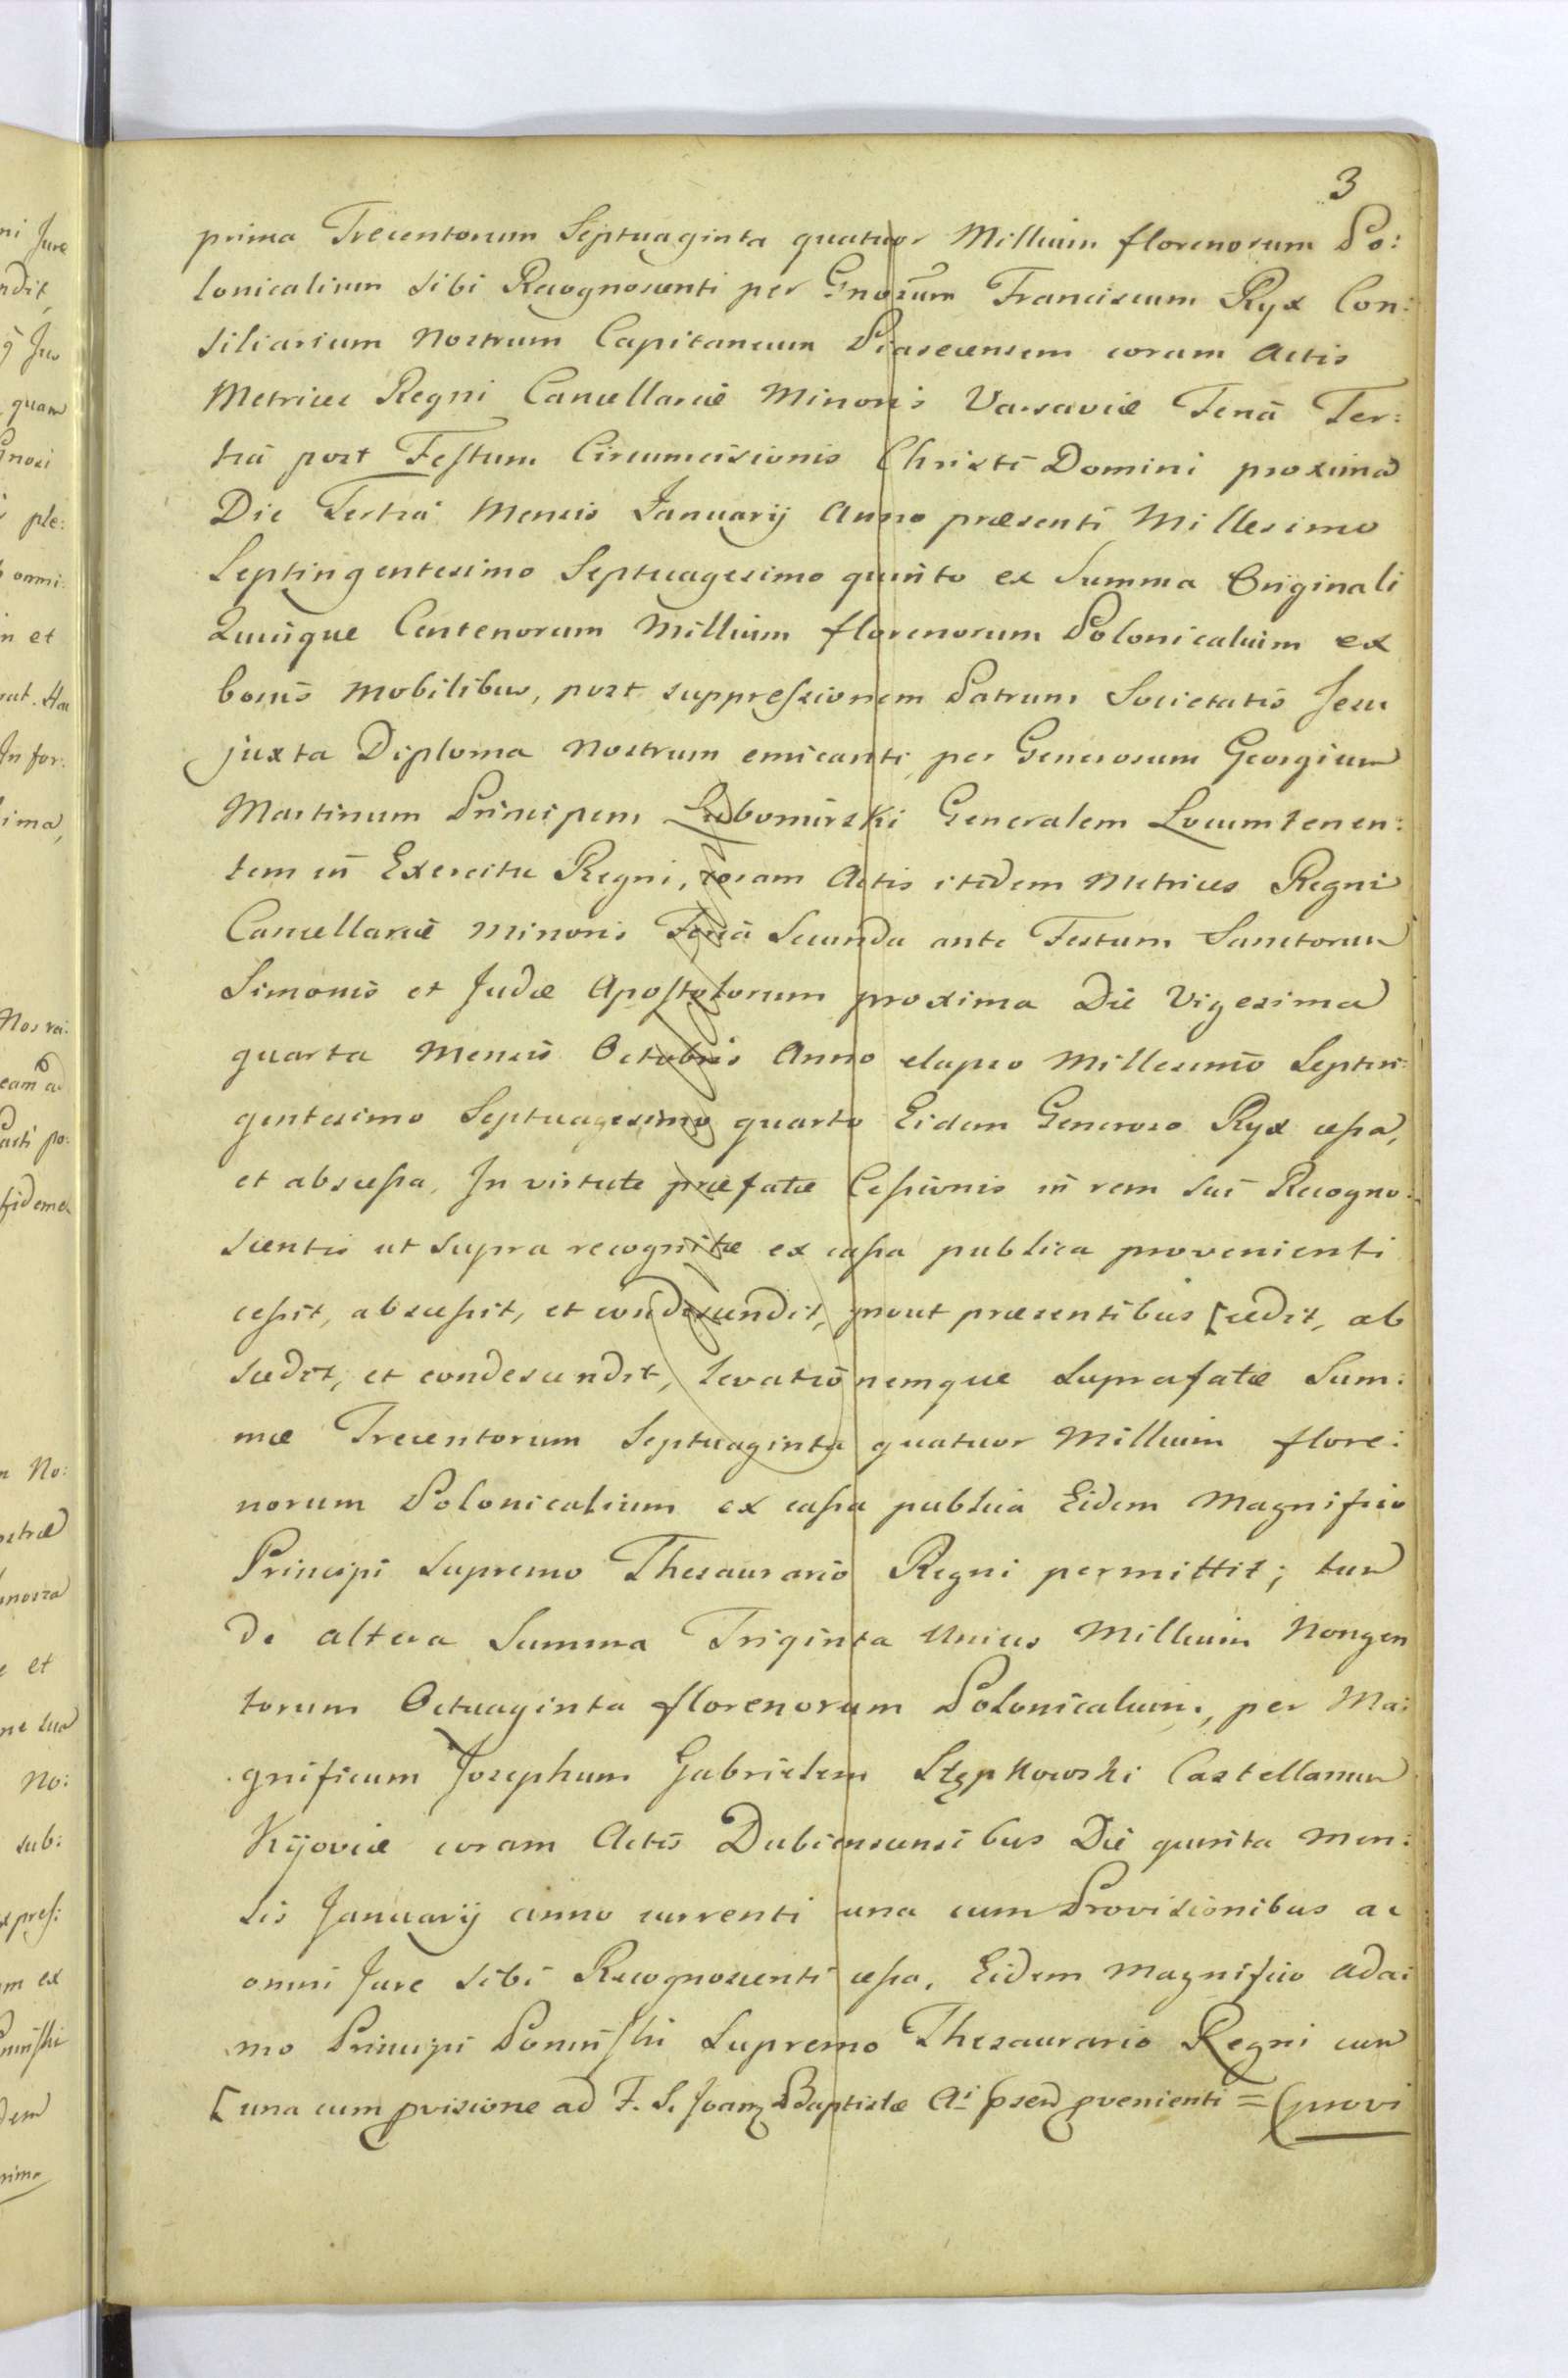 3
prima Trecentorum Septuaginta quatuor Millium florenorum Po:
lonicalium sibi Recognoscenti per Gnosum Franciscum Ryx Con:
siliarium Nostrum Capitaneum Piasecensem coram Actis
Metrices Regni Cancellariæ Minoris Varsaviæ Feriâ Ter:
tiâ post Festum Circumcisionis Christi Domini proxima
Die Tertiâ Mensis Januarij Anno præsenti Millesimo
Septingentesimo Septuagesimo quinto ex Summa Originali
Quinque Centenorum Millium florenorum Polonicalium ex
bonis Mobilibus, post suppressionem Patrum Societatis Jesu
juxta Diploma Nostrum emicanti, per Generosum Georgium
Martinum Principem Lubomirski Generalem Locumtenen:
tem in Exercitu Regni, coram Actis itidem Metrices Regni
Cancellariæ Minoris Feriâ Secunda ante Festum Sanctorum
Simonis et Judæ Apostolorum proxima Die Vigesima
quarta Mensis Octobris Anno elapso Millesimo Septin:
gentesimo Septuagesimo quarto Eidem Generoso Ryx cessa,
et abscessa, In virtute præfatæ Cessionis in rem sui Recogno:
scentis ut supra recognitæ ex cassa publica provenienti
cessit, abscessit, et condescendit, prout præsentibus [cedit, ab
scedit, et condescendit, levationemque Suprafatæ Sum:
mæ Trecentorum Septuaginta quatuor Millium flore:
norum Polonicalium ex cassa publica Eidem Magnifico
Principi Supremo Thesaurario Regni permittit; tum
de altera Summa Triginta Unius Millium Nongen
torum Octuaginta florenorum Polonicalium, per Ma:
gnificum Josephum Gabrielem Stępkowski Castellanum
Kijoviæ coram Actis Dubiensensibus Die quinta Men:
sis Januarij anno currenti una cum Provisionibus ac
omni Jure sibi Recognoscenti cessa, Eidem Magnifico Ada:
mo Principi Poninski Supremo Thesaurario Regni cum
[una cum pvisione ad F. S. Joanz Baptistæ Ai psen pvenienti = (provi